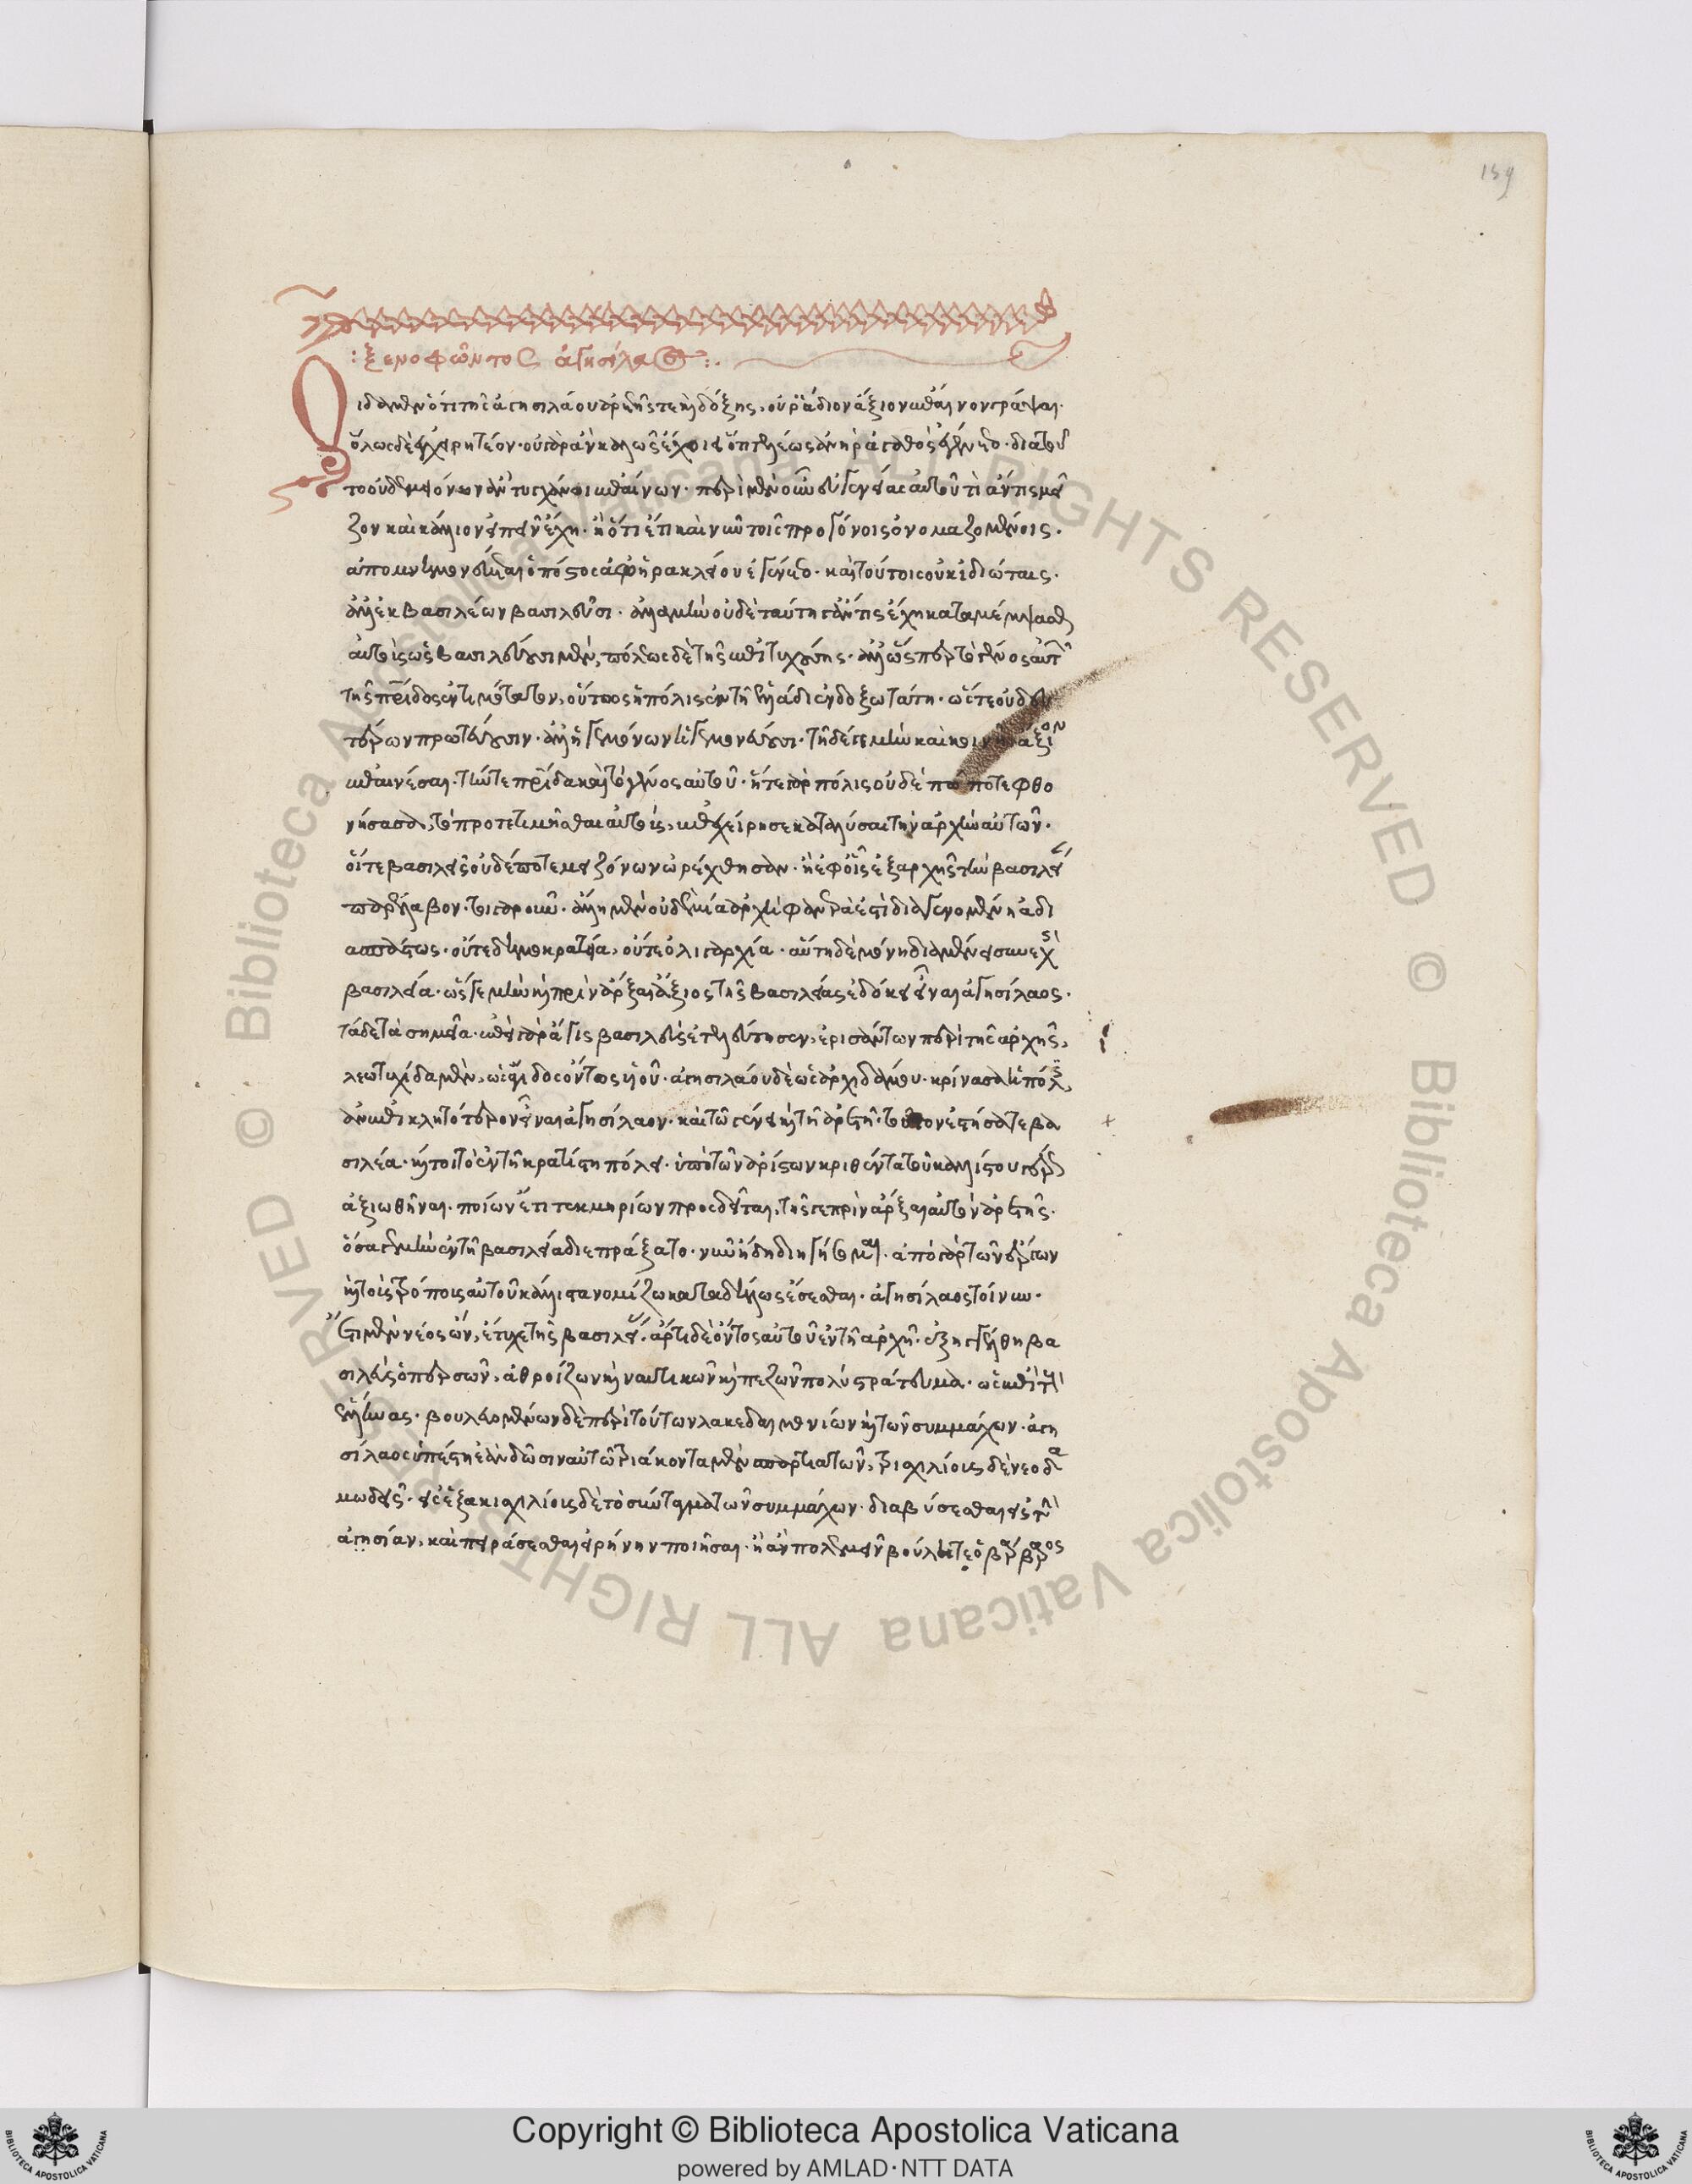 159
: ξενοφῶντος ἀγησίλαος :.
Οἶδα μὲν ὅτι τῆς ἀγησιλάου ἀρετῆς τε καὶ δόξης, οὐ ῥᾴδιον ἄξιον ἔπαινον γράψαι.
ὅμως δὲ ἐγχειρητέον. οὐ γὰρ ἂν καλῶς ἔχοι εἰ ὅτι τελέως ἀνὴρ ἀγαθὸς ἐγένετο. διὰ τοῦ
το οὐδὲ μειόνων ἂν τυγχάνοι ἐπαίνων. περὶ μὲν οὖν εὐγενείας αὐτοῦ τί ἄν τις μεῖ
ζον καὶ κάλλιον εἰπεῖν ἔχῃ. ἢ ὅτι ἔτι καὶ νῦν τοῖς προγόνοις ὀνομαζομένοις.
ἀπομνημονεύεται ὁπόστος ἀφ' ἡρακλέου ἐγένετο. καὶ τούτοις οὐκ ἰδιώταις.
ἀλλ' ἐκ βασιλέων βασιλεῦσι. ἀλλὰ μὴν οὐδὲ ταύτῃ γ' ἄν τις ἔχῃ καταμέμψασθαι
αὐτοὺς ὡς βασιλεύουσι μὲν, πόλεως δὲ τῆς ἐπιτυχούσης. ἀλλ' ὥσπερ τὸ γένος αὐτῶν
τῆς πρίδος ἐντιμότατον, οὕτως ἡ πόλις ἐν τῇ ἑλλάδι ἐνδοξωτάτη. ὥστε οὐ δευ
τέρων πρωτεύουσιν. ἀλλ' ἡγεμόνων ἡγεμονεύουσι. τῇδέ γε μὴν καὶ κοινῇ ἄξιον
ἐπαινέσαι. τήν τε πρίδα καὶ τὸ γένος αὐτοῦ. ἥ τε γὰρ πόλις οὐδὲ πώποτε φθο
νήσασα, τοῦ προτετιμῆσθαι αὐτοὺς, ἐπεχείρησε καταλῦσαι τὴν ἀρχὴν αὐτῶν.
οἵ τε βασιλεῖς οὐδέποτε μειζόνων ὠρέχθησαν. ἢ ἐφ' οἷς ἐξ ἀρχῆς τὴν βασιλεί
παρέλαβον. τοιγαροῦν. ἄλλη μὲν οὐδεμία ἀρχὴ φανερά ἐστὶ διαγενομένη ἀδι
ασπάστως. οὔτε δημοκρατία, οὔτε ὀλιγαρχία. αὕτη δὲ μόνη διαμένει συνεχὴς
βασιλεία. ὥς γε μὴν καὶ πρὶν ἄρξαι ἄξιος τῆς βασιλείας ἐδόκει εἶναι ἀγησίλαος.
τάδε τὰ σημεῖα. ἐπεὶ γὰρ ἄγις βασιλεὺς ἐτελεύτησεν, ἐρισάντων περὶ τῆς ἀρχῆς,
λεωτυχίδα μὲν, ὡς ἄγιδος ὄντος υἱοῦ. ἀγησιλάου δὲ ὡς ἀρχιδάμου. κρίνασα ἡ πόλις,
ἀνεπικλητότερον εἶναι ἀγησίλαον. καὶ τῷ γένει καὶ τῇ ἀρετῇ. τοῦτον ἐστήσατε βα
σιλέα. καίτοι τὸ ἐν τῇ κρατίστῃ πόλει. ὑπὸ τῶν ἀρίστων κριθέντα τοῦ καλλίστου γέρως
ἀξιωθῆναι. ποίων ἔτι τεκμηρίων προσδεῖται, τῆς γε πρὶν ἄρξαι αὐτὸν ἀρετῆς.
ὅσα γε μὴν ἐν τῇ βασιλείᾳ διεπράξατο. νῦν ἤδη διηγήσομαι. ἀπὸ γὰρ τῶν ἔργων
καὶ τοὺς τρόπους αὐτοῦ κάλλιστα νομίζω καταδήλους ἔσεσθαι. ἀγησίλαος τοίνυν.
ἔτι μὲν νέος ὢν, ἔτυχε τῆς βασιλείας. ἄρτι δὲ ὄντος αὐτοῦ ἐν τῇ ἀρχῇ. ἐξηγγέλθη βα
σιλεὺς ὁ περσῶν, ἀθροίζων καὶ ναυτικὸν καὶ πεζὸν πολὺ στράτευμα. ὡς ἐπὶ τοὺς
ἕλληνας. βουλευομένων δὲ περὶ τούτων λακεδαιμονίων καὶ τῶν συμμάχων. ἀγη
σίλαος ὑπέστη ἐὰν δῶσιν αὐτῷ τριάκοντα μὲν σπαρτιατῶν, τρισχιλίους δὲ νεοδα
μώδεις. εἰς ἑξακισχιλίους δὲ τὸ σύνταγμα τῶν συμμάχων. διαβήσεσθαι εἰς τὴν
ἀσίαν, καὶ πειράσεσθαι εἰρήνην ποιῆσαι. ἢ ἂν πολεμεῖν βούληται ὁ βάρβαρος
Copyright © Biblioteca Apostolica Vaticana
powered by AMLAD·NTT DATA